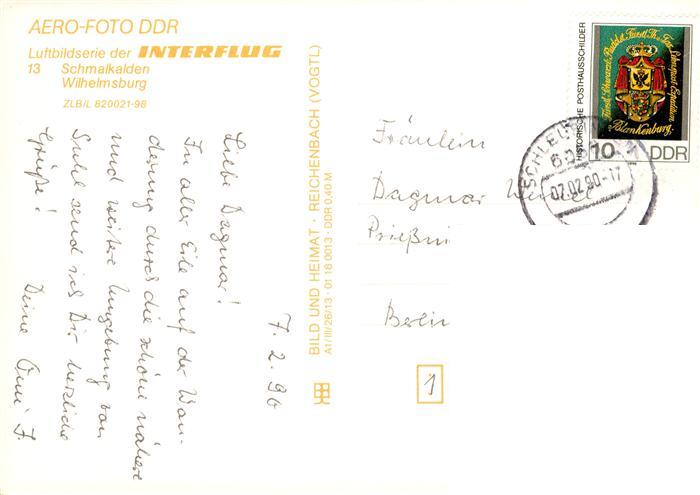 AERO-FOTO DDR
Luftbildserie der INTERFLUG
13 Schmalkalden
Wilhelmsburg
ZLB/L 820021-98
7.2.90
Liebe Dagmar!
In aller Eile auf der Wan-
derung durch die schöne nähere
und weitere Umgebung von
Suhl send ich Dir herzliche
Grüße!
Deine
BILD UND HEIMAT · REICHENBACH (VOGTL)
A1/III/26/13 · 01 18 0013 · DDR 0,40 M
HISTORISCHE POSTHAUSSCHILDER
Fürstl. Schwarzb. Rudolst. Fürstl. Th. Tax. Lehnspost Expedition
Blankenburg.
10 DDR
SCHLEU
07.02.90-17
Fräulein
Dagmar
Berlin
1